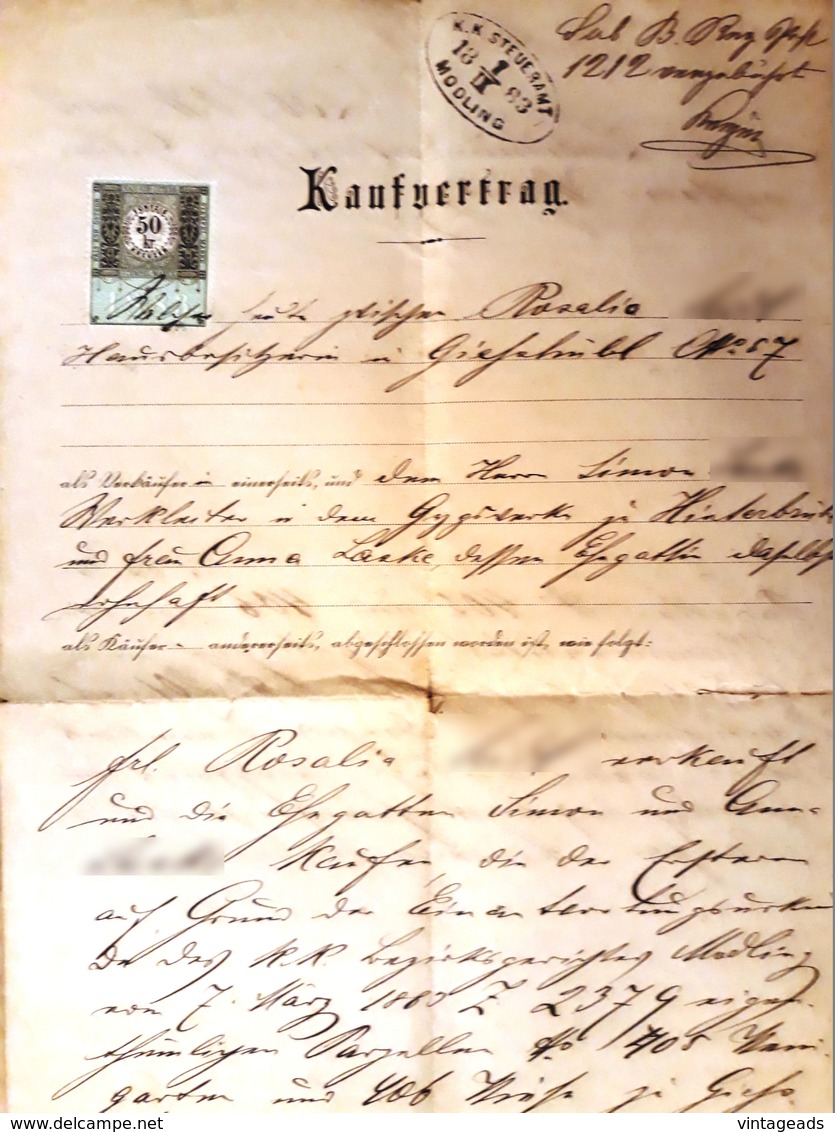 K.K. STEUERAMT
18 1/II 83
MÖDLING
Sub B. Reg
1212
Kaufvertrag.
50
kr.
Welcher heute zwischen Rosalia
Hausbesitzerin in Giesshübl No 57
als Verkäuferin einerseits, und dem Herrn Simon
Werkleiter in dem Gypswerke zu Hinterbrühl
und Frau Anna Laske, dessen Ehegattin daselbst
wohnhaft
als Käufer andererseits, abgeschlossen worden ist, wie folgt:
Frl. Rosalia verkauft
und die Ehegatten Simon und Anna
kaufen, die der Erstern
auf Grund der Einantwortungsurkun
de des k.k. Bezirksgerichtes Mödling
vom 7. März 1880 Z 2379 eigen-
thümlichen Parzellen No 405 Wein-
garten und 406 Wiese zu Giess-
www.delcampe.net
vintageads